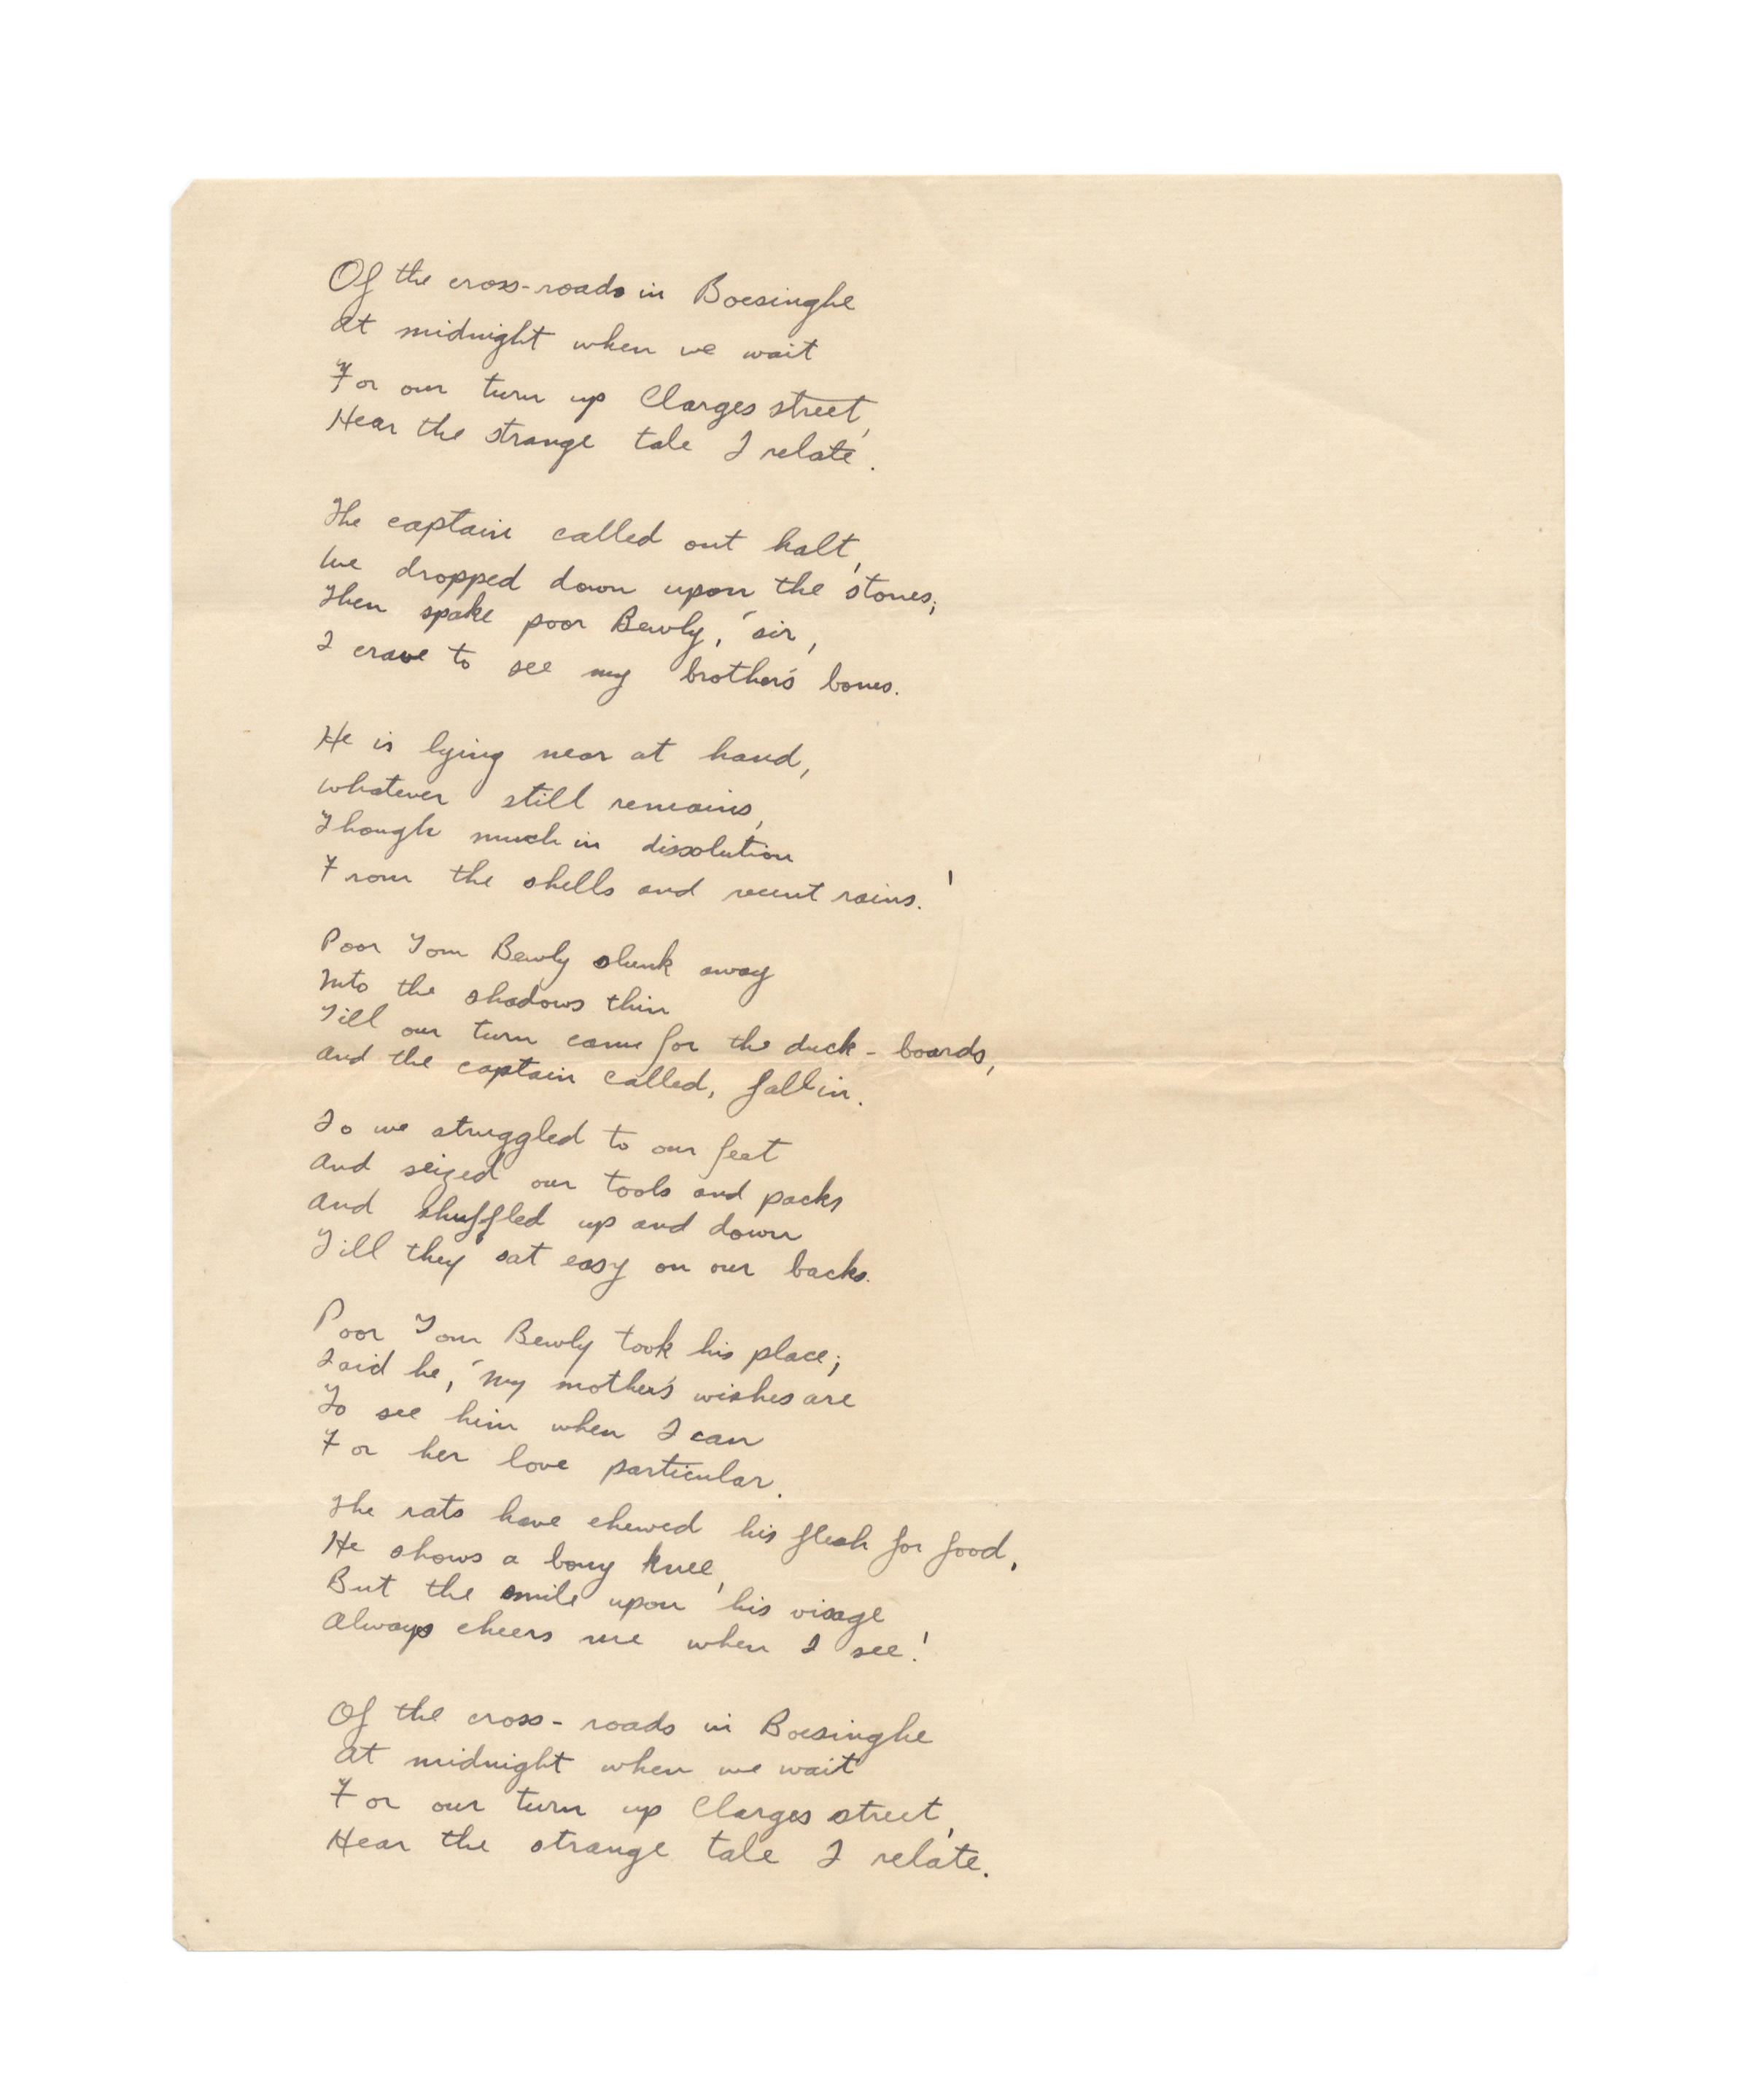 Of the cross-roads in Boesinghe
At midnight when we wait
For our turn up Clarges street,
Hear the strange tale I relate.
The captain called out halt,
We dropped down upon the stones;
Then spake poor Bewly, 'sir,
I crave to see my brother's bones.
He is lying near at hand,
Whatever still remains,
Though much in dissolution
From the shells and recent rains.'
Poor Tom Bewly slunk away
Into the shadows thin
Till our turn came for the duck-boards,
And the captain called, fall in.
So we struggled to our feet
And seized our tools and packs
And shuffled up and down
Till they sat easy on our backs.
Poor Tom Bewly took his place;
Said he, 'My mother's wishes are
To see him when I can
For her love particular.
The rats have chewed his flesh for food,
He shows a bony knee,
But the smile upon his visage
Always cheers me when I see!'
Of the cross-roads in Boesinghe
At midnight when we wait
For our turn up Clarges street,
Hear the strange tale I relate.